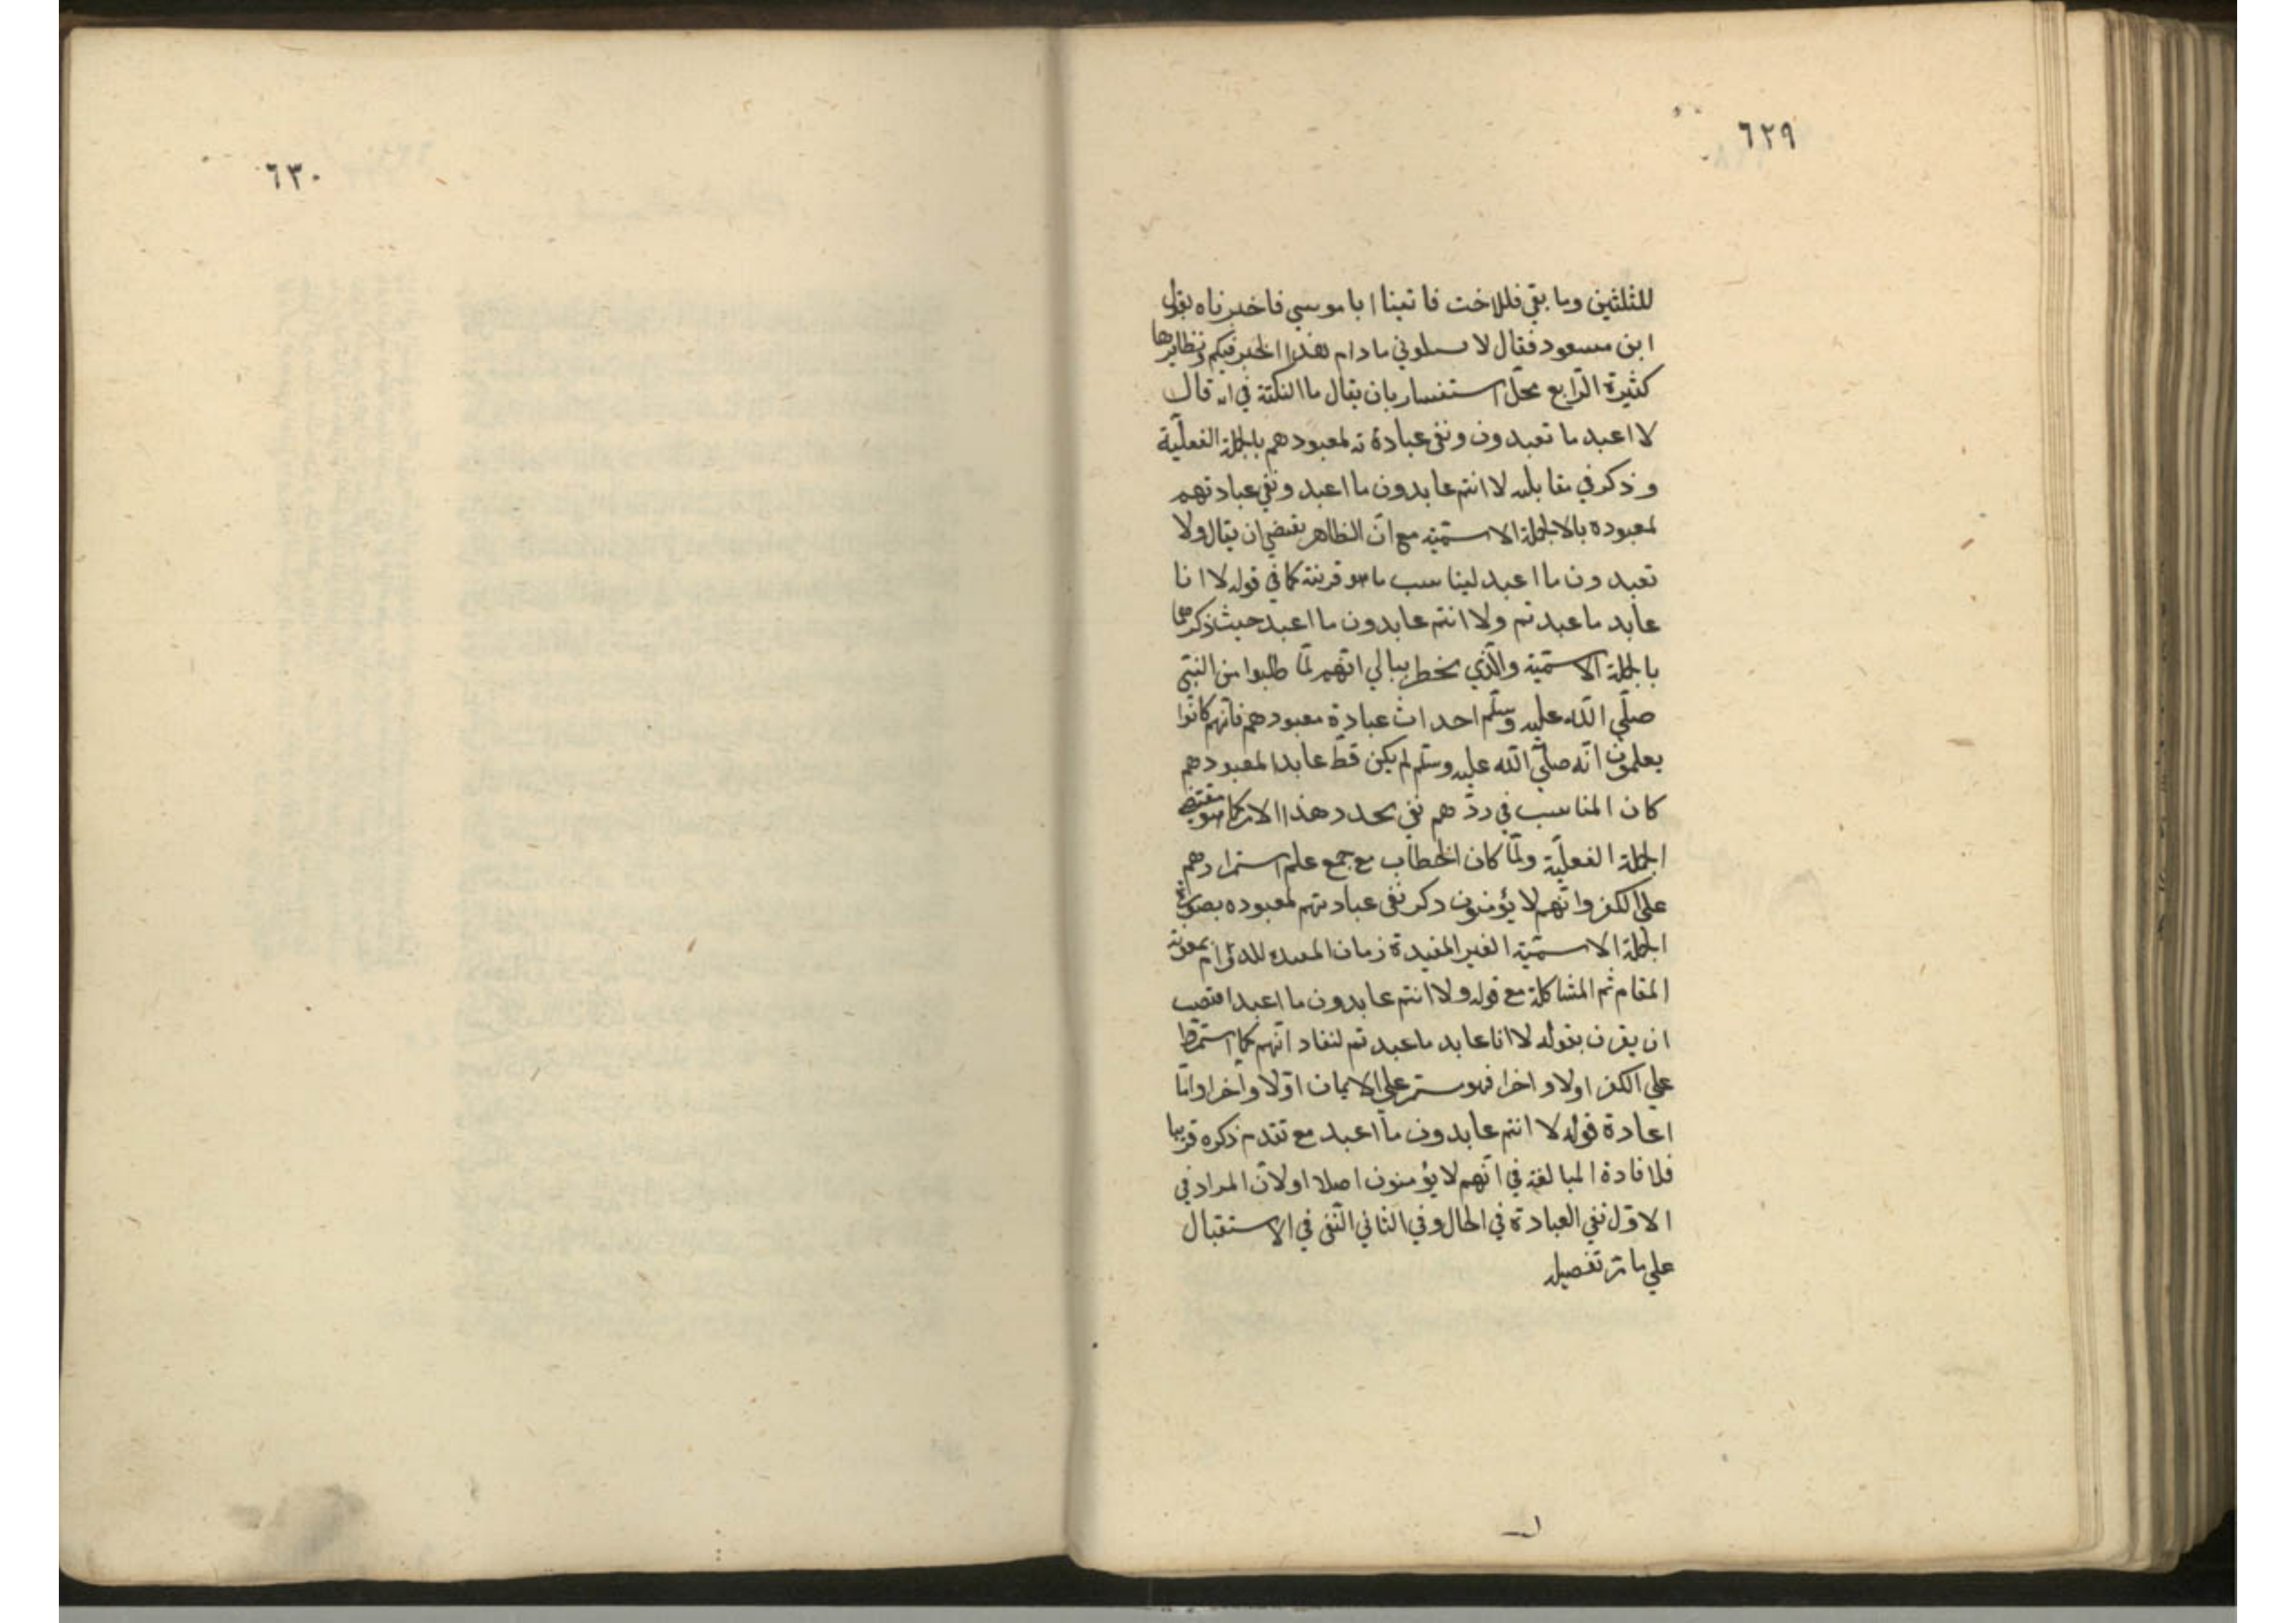 ٦٢٩
للثلثين وما بقي فللاخت فاتينا ابا موسي فاخبرناه بقول
ابن مسعود فقال لا تسلوني ما دام هذا الحبر فيكم ونظايرها
كثيرة الرّابع محلّ استفسار بان يقال ما النكتة في انه قال
لا اعبد ما تعبدون ونفي عبادة ته لمعبودهم بالجملة الفعليّة
وذكر في مقابله لا انتم عابدون ما اعبد ونفي عبادتهم
لمعبوده بالاجملة الاسميّة مع انّ الظاهر يقتضي ان يقال ولا
تعبدون ما اعبد ليناسب ما هو قرينة كما في قوله لا انا
عابد ما عبدتم ولا انتم عابدون ما اعبد حيث ذكرهما
بالجملة الاسميّة والّذي يخطر ببالي انّهم لمّا طلبوا من النبيّ
صلّي اللّه عليه وسلّم احداث عبادة معبودهم فانّهم كانوا
يعلمون انّه صلّي اللّه عليه وسلّم لم يكن قطّ عابدا لمعبودهم
كان المناسب في ردّهم نفي تجدد هذا الامر كما هو مقتضي
الجملة الفعليّة ولمّا كان الخطاب مع جمع علم استمرارهم
علي الكفر وانّهم لا يؤمنون ذكر نفي عبادتهم لمعبوده بصورة
الجملة الاسميّة الغير المفيدة زمان المفيدة للدوام بمعونة
المقام ثم المشاكلة مع قوله ولا انتم عابدون ما اعبد اقتضت
ان يقرن بقوله لا انا عابد ما عبدتم لنفاد انّهم كما استمرّوا
علي الكفر اولا واخرا فهو مستمر علي الايمان اوّلا وآخرا وامّا
اعادة قوله لا انتم عابدون ما اعبد مع تقدم ذكره قريبا
فلافادة المبالغة في انّهم لا يؤمنون اصلا او لانّ المراد في
الاوّل نفي العبادة في الحال وفي الثاني النّفي في الاستقبال
علي ما مرّ تفصيله
٦٣٠